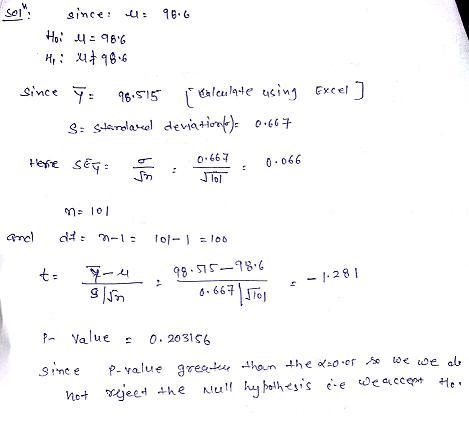 Solⁿ: since: μ = 98.6
H₀: μ = 98.6
H₁: μ ≠ 98.6
Since ȳ = 98.515 [Calculate using Excel]
S = standard deviation(σ) = 0.667
Here SEȳ = σ/√n = 0.667/√101 = 0.066
n = 101
and df = n-1 = 101-1 = 100
t = (ȳ-μ)/(S/√n) = (98.515-98.6)/(0.667/√101) = -1.281
P- Value = 0.203156
Since P-value greater than the α=0.05 so we we do
not reject the Null hypothesis i.e we accept H₀.